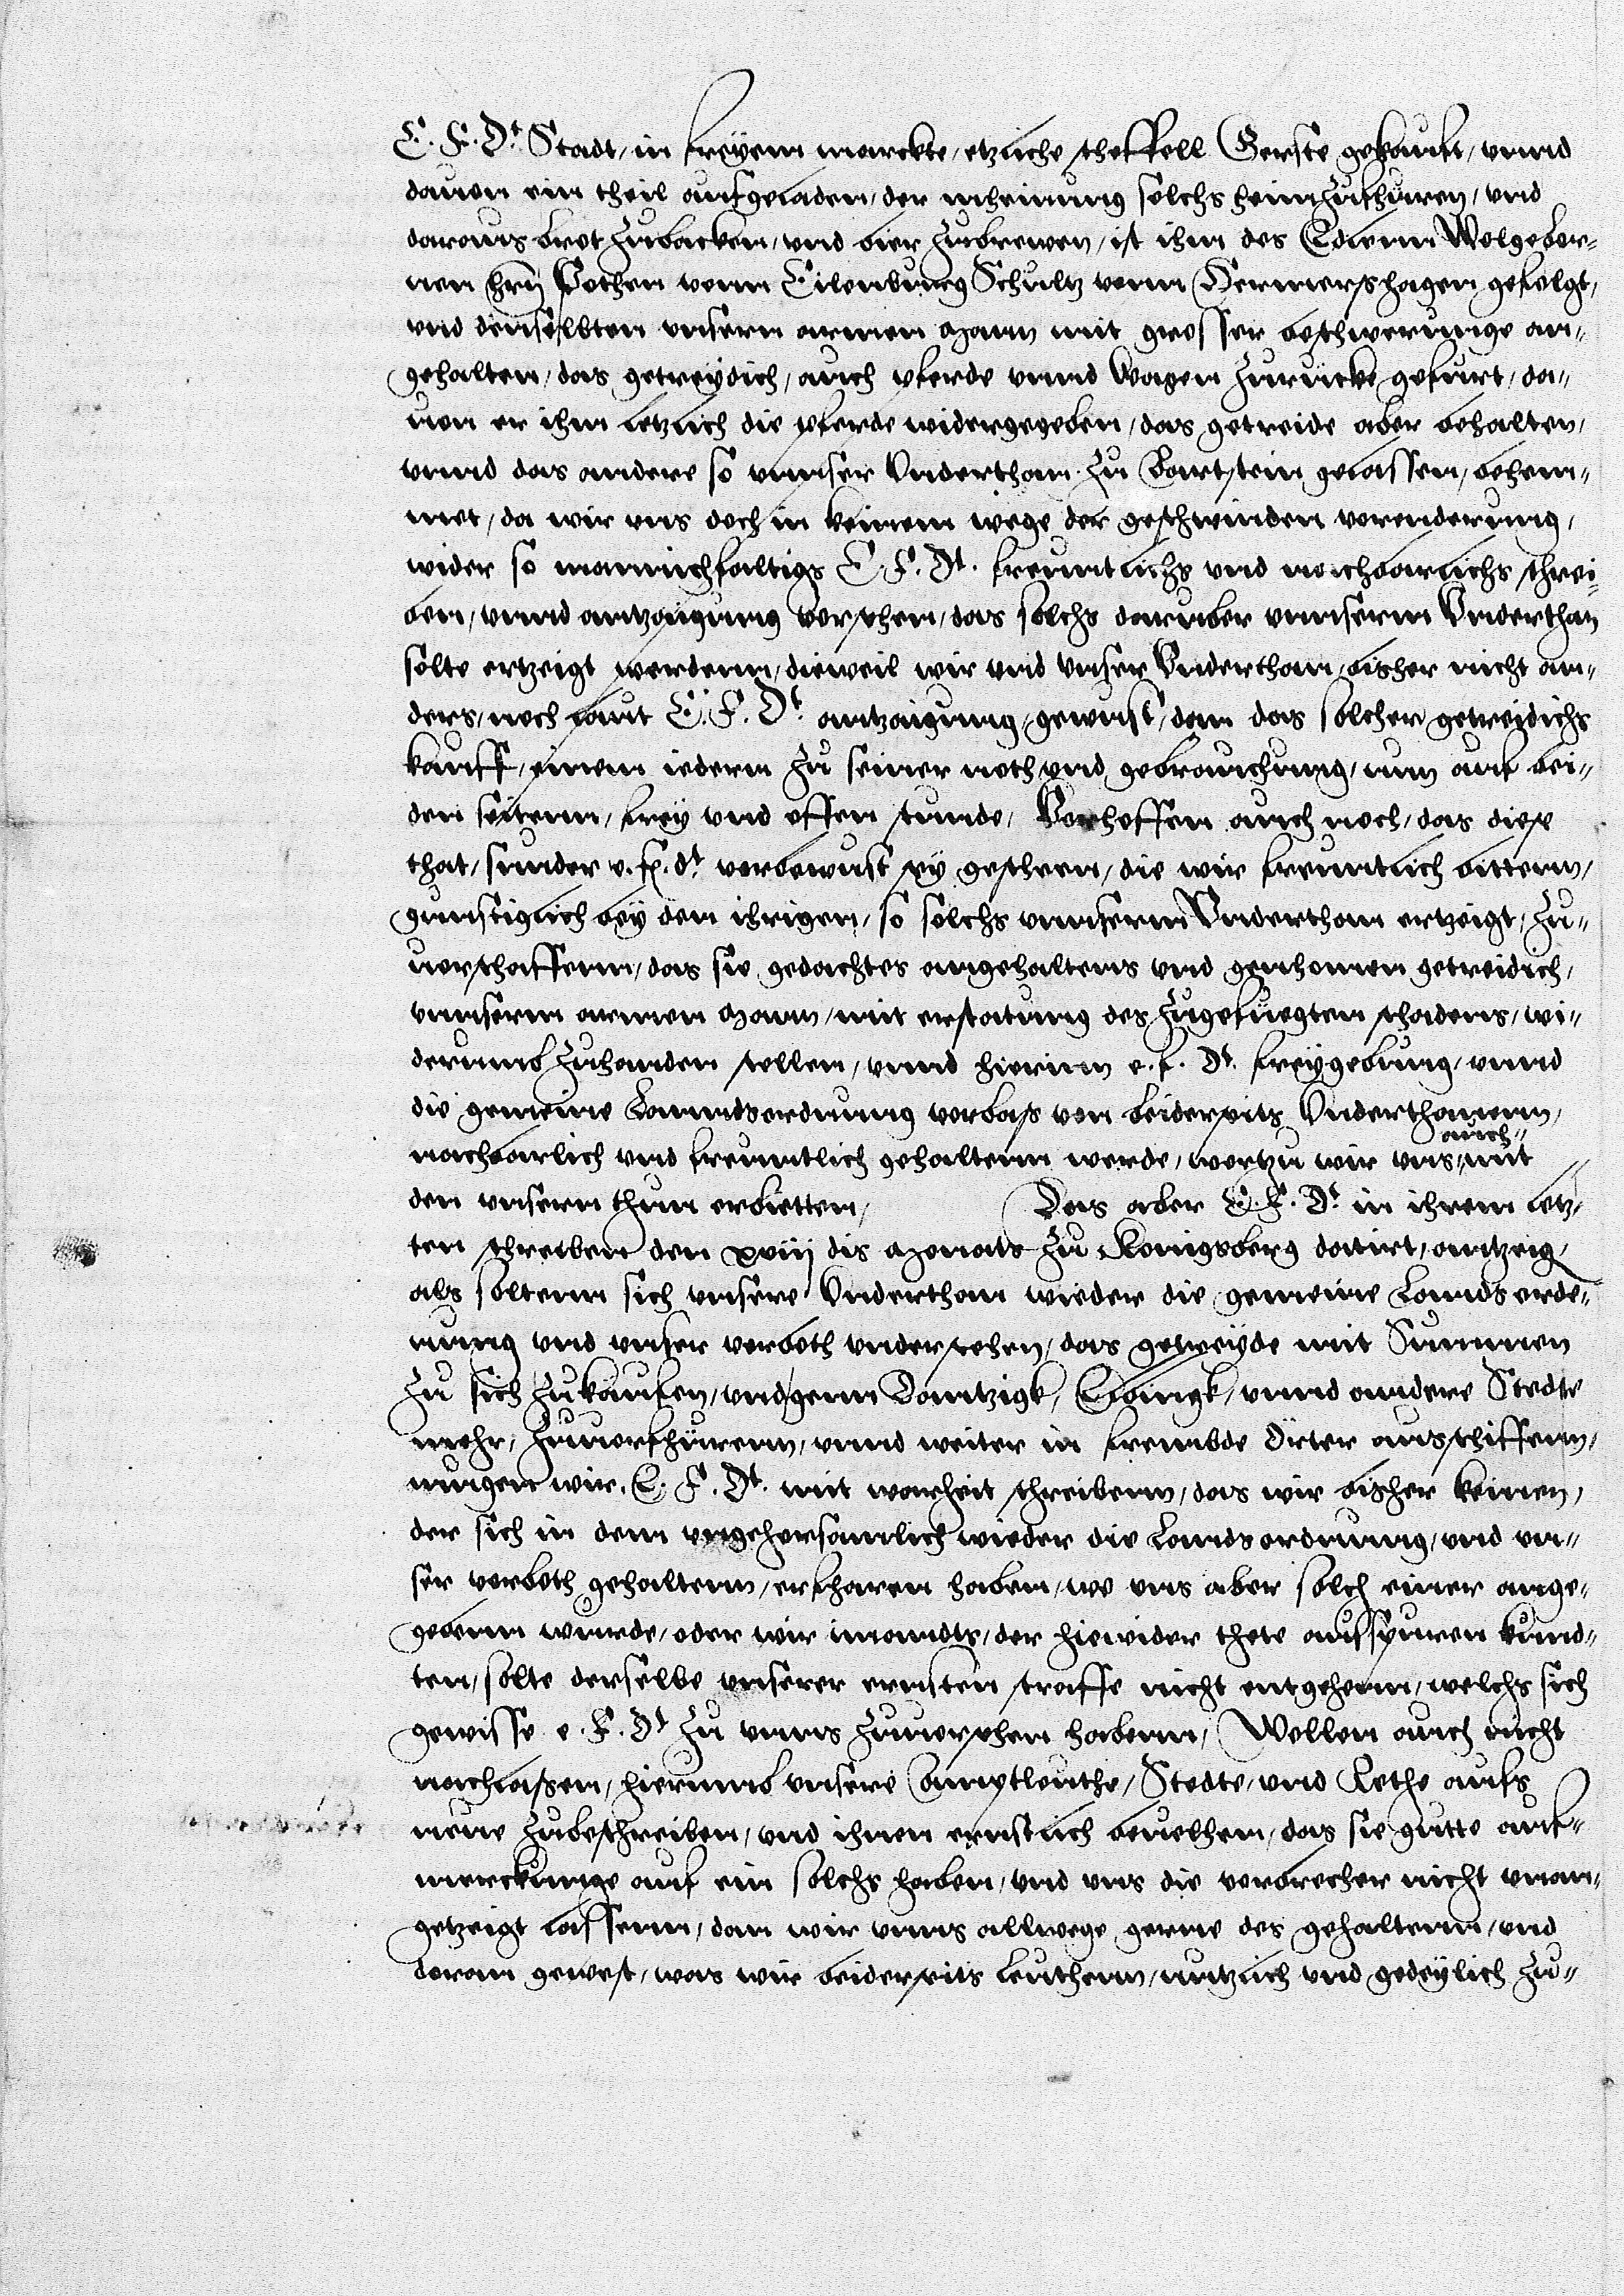 E. F. Dt. Stadt, in freyem marckte, etzliche scheffell Gerste gekauft, vnnd
dauon ein theil aufgeladen, der mheinung solchs heim zufhuren, vnd
daraus brot zubacken, vnd bier zubrewen, ist ihm des Edlenn Wolgebor-
nen hern Bothen vonn Eilenburg Schultz vonn Hermershagen gefolgt,
vnd denselbten vnsern armen Mann mit grosser beschwerunge an-
gehalten, das getreydich, auch pferde vnnd Wagen zurucke gefurt, da-
uon er ihm letzlich die pferde widergegeben, das getreide aber behalten,
vnnd das andere so vnnser Vnderthan zu Bartstein gelassen, behem-
met, da wir vns doch in keinem wege der geschwinden vorenderung,
wider so mannichfaltigs E. F. Dt. freuntlichs vnd nachbarlichs schrei-
ben, vnnd antzaigung vorsehen, das solchs daruber vnnserm Vnderthan
solte ertzeigt werdenn, dieweil wir vnd vnser Vnderthan, bisher nicht an-
ders, noch laut E. F. Dt. antzaigung, gewust, dan das solcher getreidichs
kauff, einem iedern zu seiner noth vnd gebrauchung, nun auf bei-
den seitenn, frey vnd offen stunde, Vorhoffen auch noch, das diese
that, sunder e. f. dt. vorbewust sey geschehen, die wir freuntlich bittenn,
gunstiglich bey den ihrigen, so solchs vnnserm Vnderthan ertzeigt, zu-
uorschaffenn, das sie gedachtes angehaltens vnd genhomen getreidich,
vnnserm armen Mann, mit erstatung des zugefuegten schadens, wi-
derumb zuhanden stellen, vnnd hierinn e. f. Dt. freygebung, vnnd
die gemeine Lanndsordnung vorbas von beiderseits Vnderthanenn,
nachbarlich vnd freuntlich gehaltenn werde, wortzu wir vns auch mit
den vnsern thun erbietten, Das aber E. F. Dt. in ihrem letz-
ten schreiben den xviij dis Monats zu Konigsberg datirt, antzeig,
als soltenn sich vnsere Vnderthan wieder die gemeine Landsorde-
nung vnd vnser verboth vnderstehen, das getreyde mit Summen
zu sich zukaufen, vnd genn Dantzigk, Elbingk, vnnd andere Stedte
mehr, zuuorfhurenn, vnnd weiter in frembde Örter ausschiffenn,
mugen wir E. F. Dt. mit warheit schreibenn, das wir bisher keinen,
der sich in dem vngehorsamlich wieder die Landsordnung, vnd vn-
ser verboth gehaltenn, erfharen haben, wo vns aber solch einer ange-
gebenn wurde, oder wir imandts, der hiewider thete ausspuren kund-
ten, solte derselbe vnserer ernsten straffe nicht entgehenn, welchs sich
gewisse e. F. Dt. zu vnns zuuorsehen habenn, Wollen auch nicht
nachlassen, hierumb vnsere Amptleuthe, Stedte, vnd Rethe aufs
neue zubeschreiben, vnd ihnen ernstlich beuelhen, das sie gutte auf-
merckunge auf ein solchs haben, vnd vns die verbrecher nicht vnan-
getzeigt lassenn, dan wir vnns allwege gerne des gehaltenn, vnd
daran gewest, was wir beiderseits leuthenn, nutzlich vnd gedeylich zu-